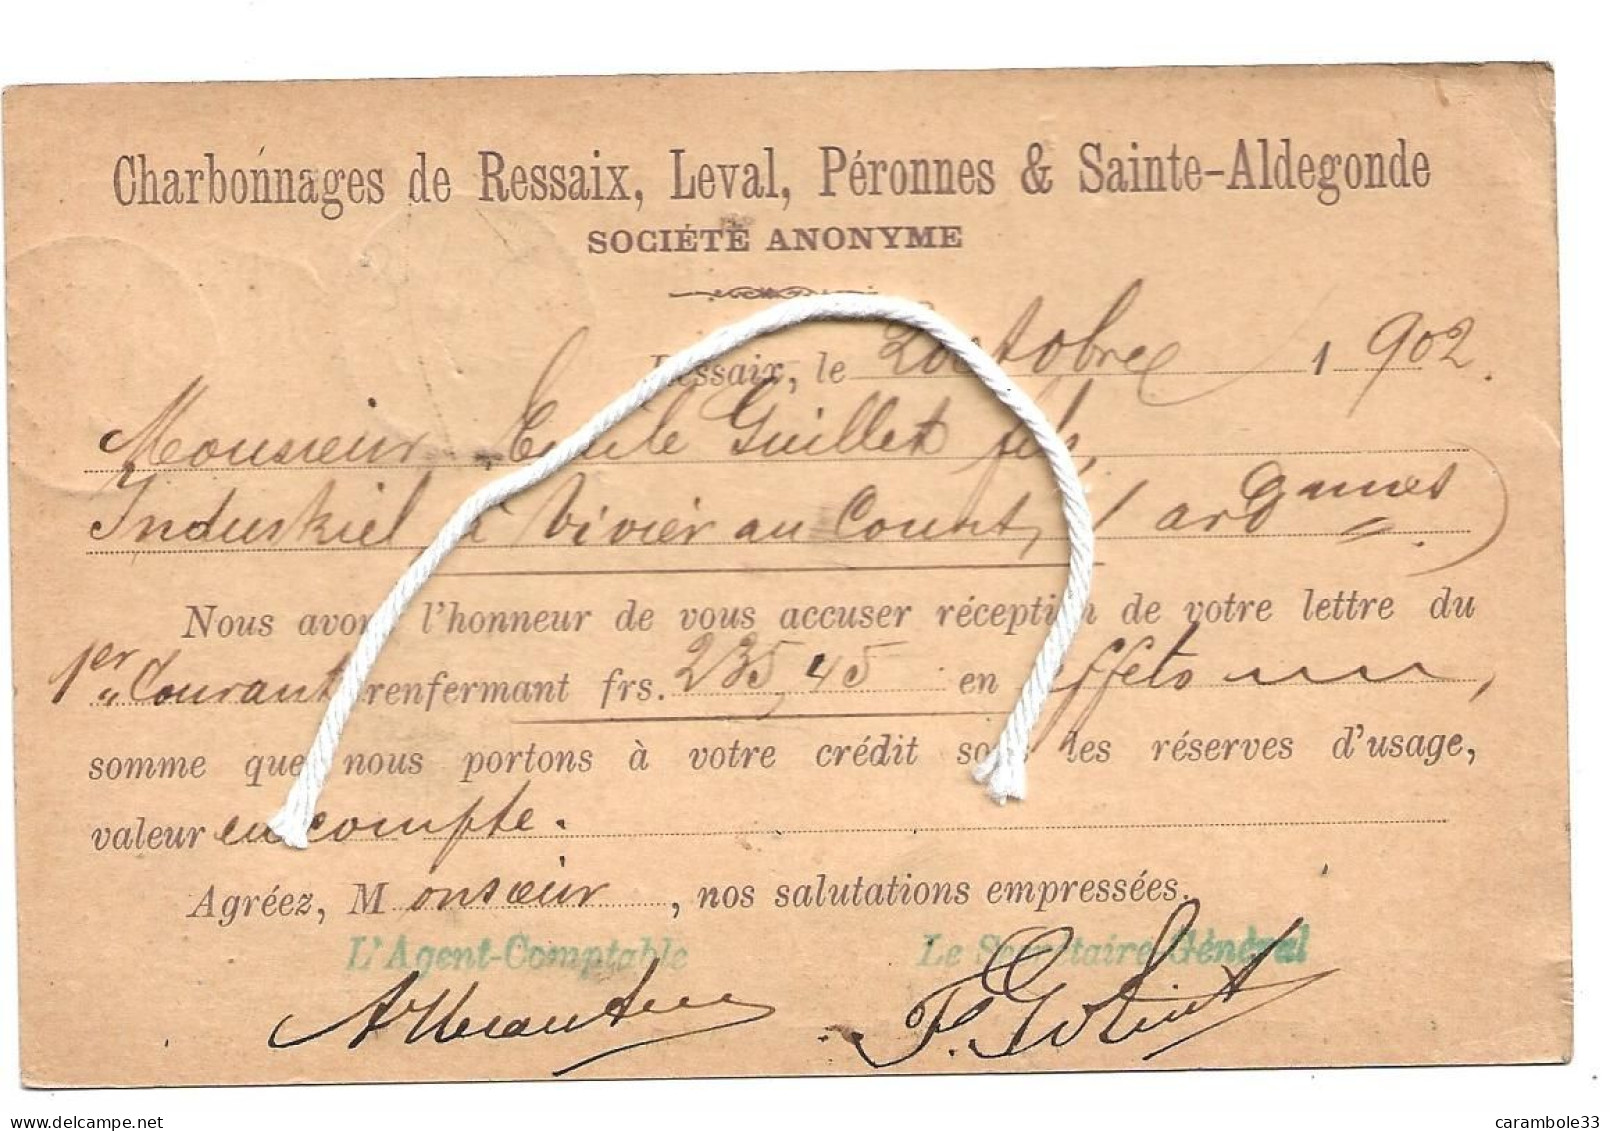 Charbonnages de Ressaix, Leval, Péronnes & Sainte-Aldegonde
SOCIÉTÉ ANONYME
Ressaix, le 2 octobre 1902.
Monsieur Emile Guillet fils,
Industriel à Vivier au Court, (Ardennes)
Nous avons l'honneur de vous accuser réception de votre lettre du
1er Courant renfermant frs. 235,45 en effets
somme que nous portons à votre crédit sous les réserves d'usage,
valeur en compte.
Agréez, Monsieur, nos salutations empressées.
L'Agent-Comptable Le Secrétaire Général
carambole33